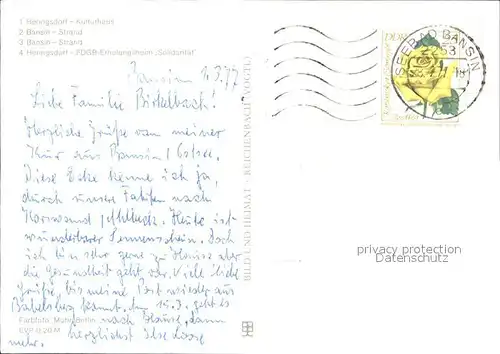 1 Heringsdorf - Kulturhaus
2 Bansin - Strand
3 Bansin - Strand
4 Heringsdorf - FDGB-Erholungsheim „Solidarität"
Bansin 4.3.77
Liebe Familie Birkelbach!
Herzliche Grüße von meiner
Kur aus Bansin / Ostsee.
Diese Ecke kenne ich ja,
durch unsere Fahrten nach
Ahlbeck. Heute ist
wunderbarer Sonnenschein. Doch
ich bin sehr gern zu Hause aber
die Gesundheit geht vor. Viele liebe
Grüße bis meine Post wieder aus
Babelsberg kommt. Am 15.3. geht es
nach Hause, dann
mehr. herzlichst Ilse
Farbfoto:
EVP 0,20 M
BILD UND HEIMAT REICHENBACH (VOGTL)
DDR
SEEBAD BANSIN
2253
privacy protection
Datenschutz